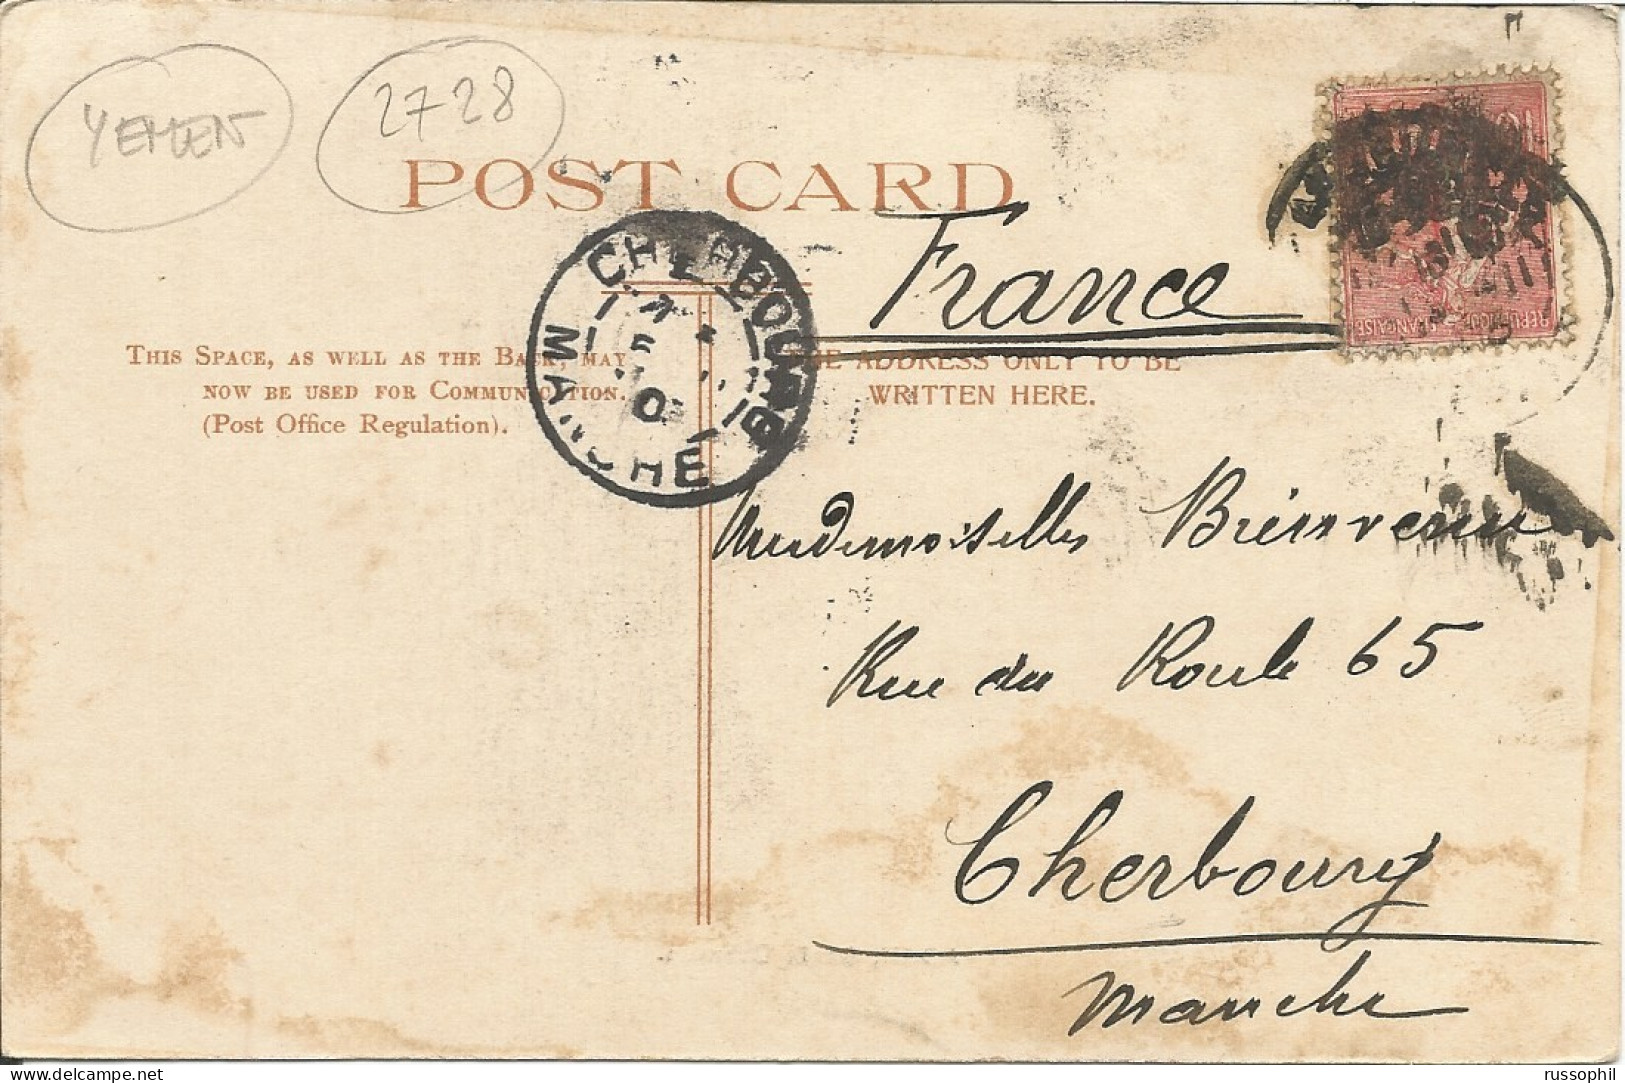 YEMEN
2728
POST CARD
France
CHERBOURG
MANCHE
THIS SPACE, AS WELL AS THE BACK, MAY
NOW BE USED FOR COMMUNICATION.
(Post Office Regulation).
THE ADDRESS ONLY TO BE
WRITTEN HERE.
REPUBLIQUE FRANÇAISE
Mademoiselle Bienvenu
Rue du Roule 65
Cherbourg
Manche
russophil